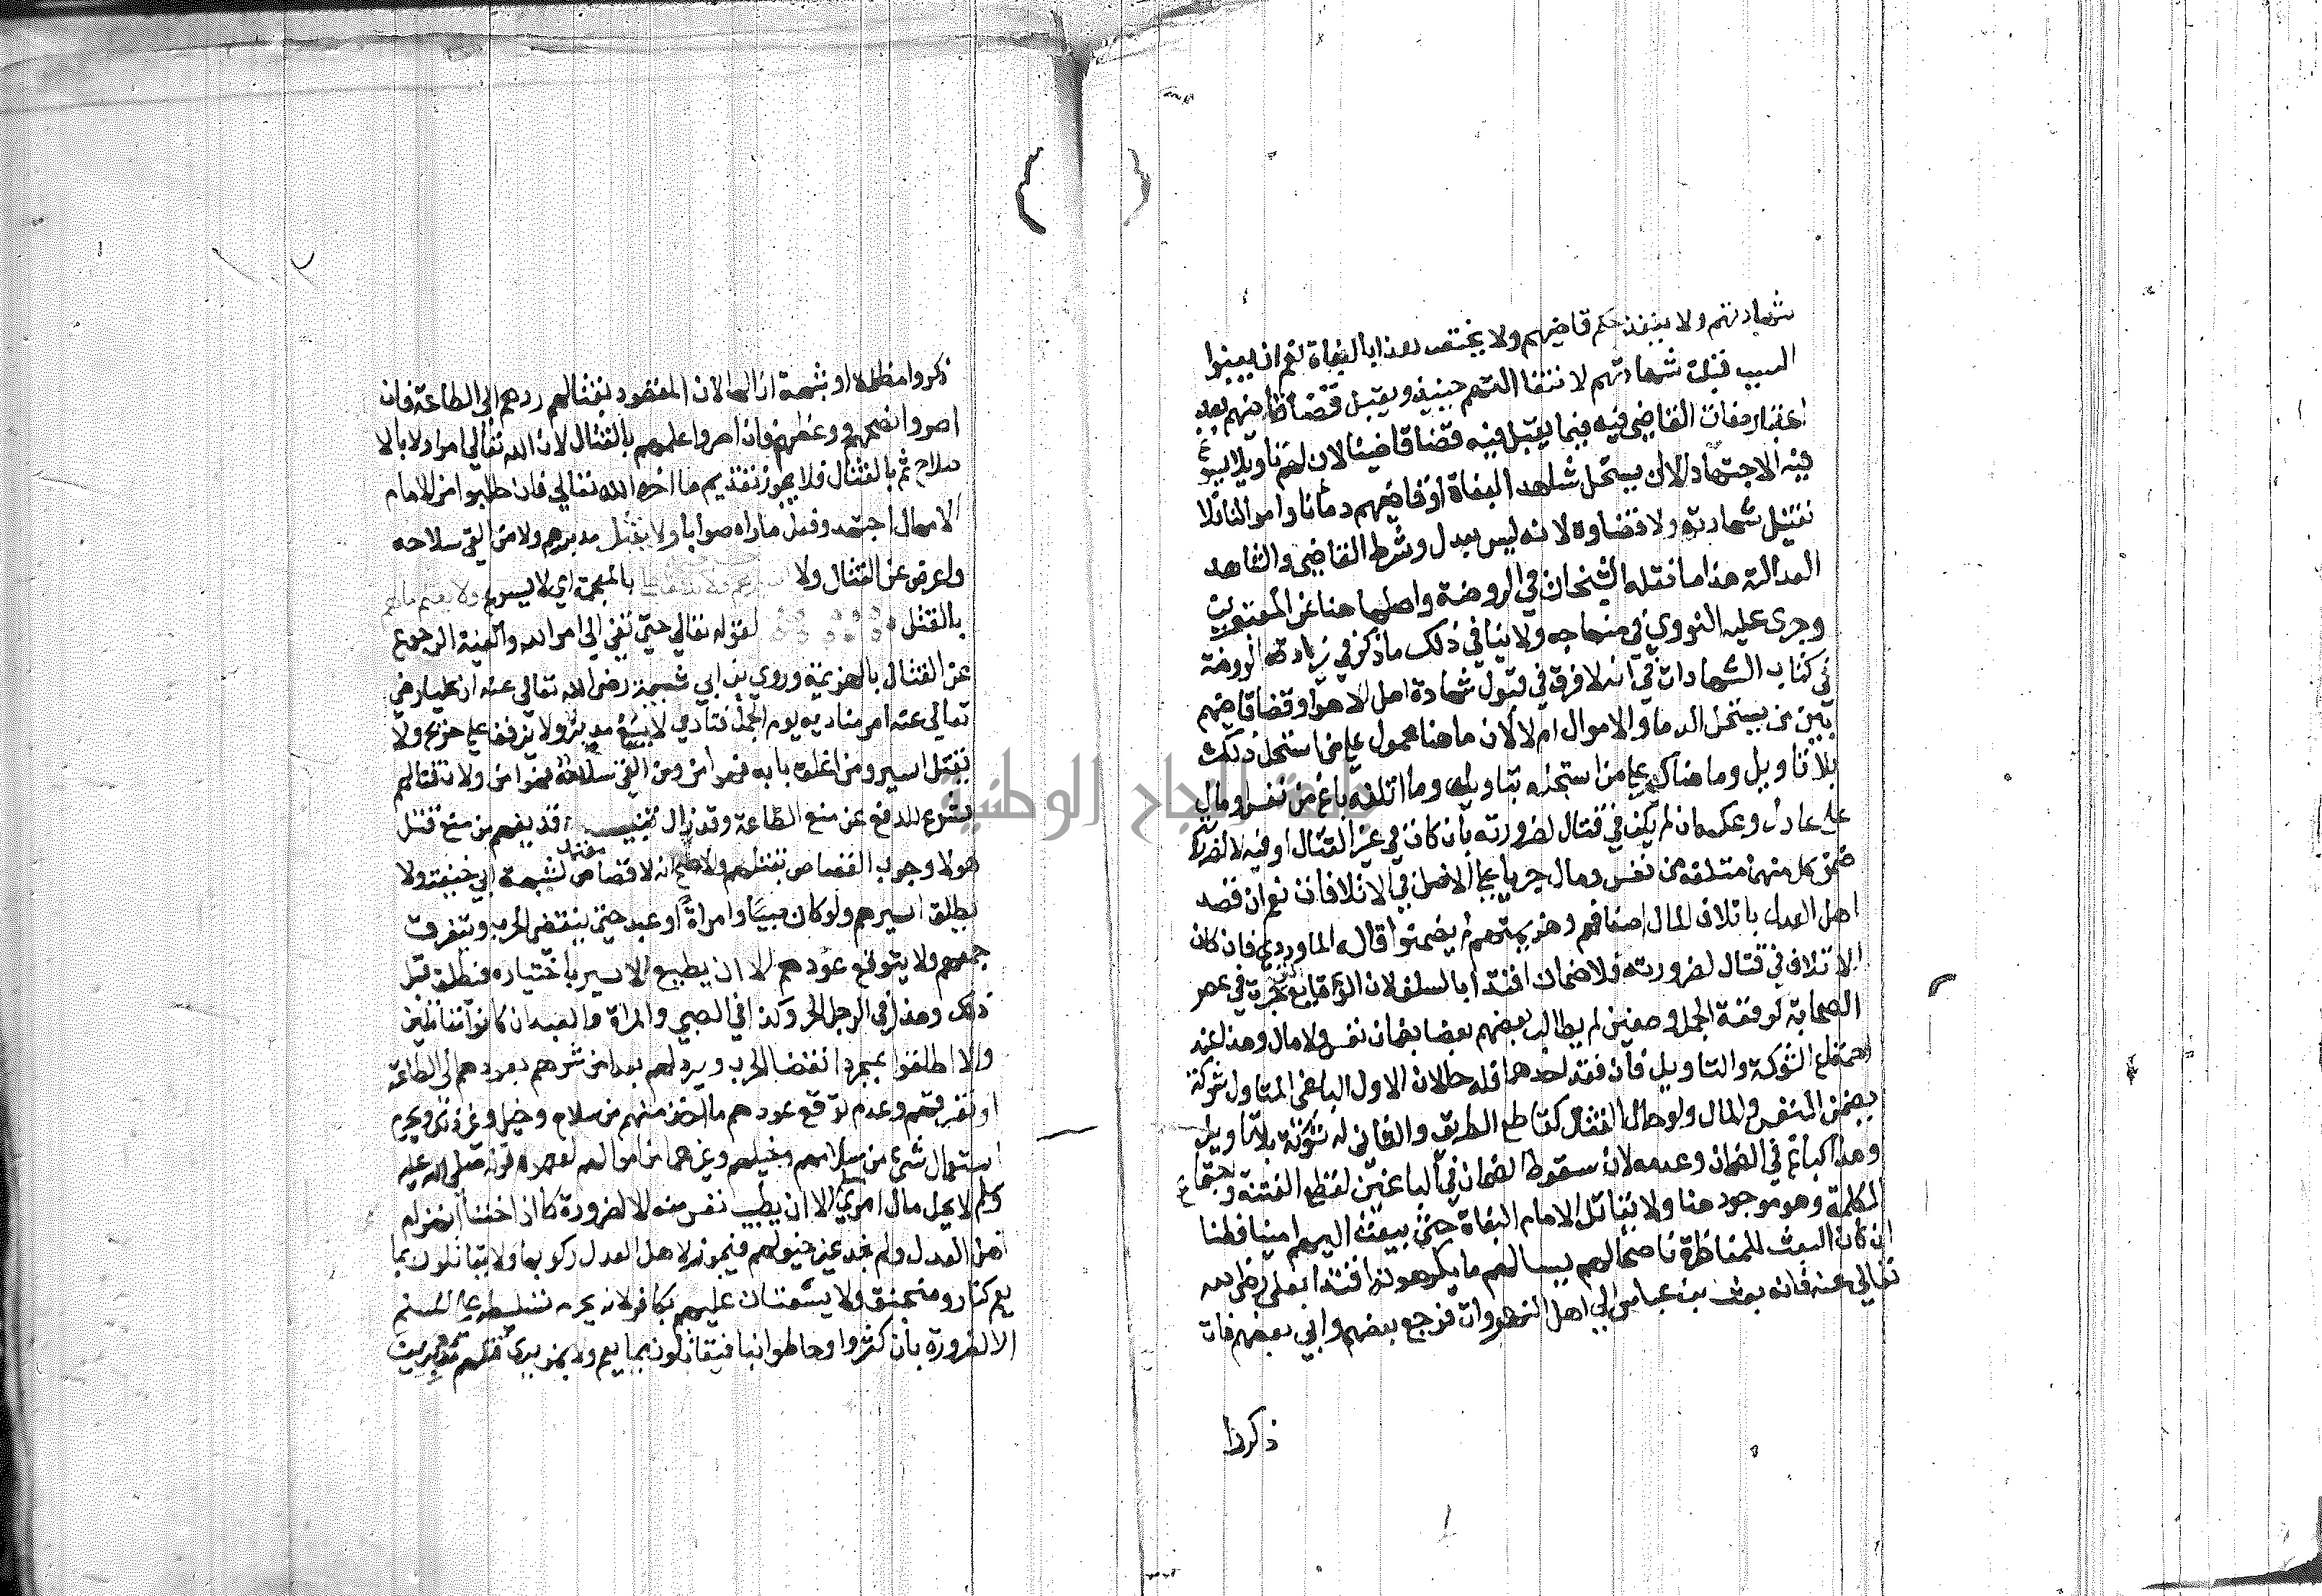 شهادتهم ولا ينفذ حكم قاضيهم ولا يختص هذا بالبغاة نعم ان بينوا
السبب قبلت شهادتهم لانتفا التهم حينيذ ويقبل قضا قاضيهم بعد
اعتبار صفات القاضي فيه فيما يقبل فيه قضا قاضينا لان لهم تاويلا يسوغ
فيه الاجتهاد الا ان يستحل شاهد البغاة او قاضيهم دمانا واموالنا فلا
تقبل شهادته ولا قضاوه لانه ليس بعدل وشرط القاضي والشاهد
العدالة هذا ما نقله الشيخان في الروضة واصلها هنا عن المعتبرين
وجرى عليه النووي في منهاجه ولا ينافي ذلك ما ذكر في زيادة الروضة
في كتاب الشهادات في انه لا فرق في قبول شهادة اهل الاهوا وقضا قاضيهم
بين من يستحل الدما والاموال ام لا لان ما هنا محمول على من استحل ذلك
بلا تاويل وما هناك على من استحله بتاويل وما اتلفه باغ من نفس او مال
على عادل وعكسه ان لم يكن في قتال لضرورته بان كان في غير القتال او فيه لا لضرورته
ضمن كل منهما متلفه من نفس ومال جريا على الاصل في الاتلافات نعم ان قصد
اهل العدل باتلاف المال اضعافهم وهزيمتهم لم يضمنوا قاله الماوردي فان كان
الاتلاف في قتال لضرورته فلا ضمان اقتدا بالسلف لان الوقايع التي جرت في عصر
الصحابة كوقعة الجمل وصفين لم يطالب بعضهم بعضا بضمان نفس ولا مال وهذا عند
اجتماع الشوكة والتاويل فان فقد احدهما فله حالان الاول الباغي المتاول بلا شوكة
يضمن النفس والمال ولو حال القتال كقاطع الطريق والثاني له شوكة بلا تاويل
وهذا كباغ في الضمان وعدمه لان سقوط الضمان في الباغين لقطع الفتنة واجتماع
الكلمة وهو موجود هنا ولا يقاتل الامام البغاة حتى يبعث اليهم امينا فطنا
ان كان البعث للمناظرة ناصحا لهم يسالهم ما يكرهونه اقتدا بعلي رضي الله
تعالى عنه فانه بعث بن عباس الى اهل النهروان فرجع بعضهم وابى بعضهم فان
ذكروا
ذكروا مظلمة او شبهة ازالها لان المقصود بقتالهم ردهم الى الطاعة فان
اصروا نصحهم ووعظهم فان اصروا اعلمهم بالقتال لان الله تعالى امر اولا بالا
صلاح ثم بالقتال فلا يجوز تقديم ما اخره الله تعالى فان طلبوا من الامام
الامهال اجتهد وفعل ما راه صوابا ولا يقتل مدبرهم ولا من القى سلاحه
واعرض عن القتال ولا بالمعجمة اي لا يسرع ولا يغنم مالهم
بالقتل لقوله تعالى حتى تفيء الى امر الله والفيئة الرجوع
عن القتال بالهزيمة وروي بن ابي شيبة رضي الله تعالى عنه ان عليا رضي
تعالى عنه امر مناديه يوم الجمل فنادى لا يتبع مدبر ولا يذفف على جريح ولا
يقتل اسير ومن اغلق بابه فهو امن ومن القى سلاحه فهو امن ولان قتالهم
شرع للدفع عن منع الطاعة وقد زال قد يفهم من منع قتل
هولا وجوب القصاص بقتلهم والاصح انه لا قصاص لشبهة ابي حنيفة ولا
يطلق اسيرهم ولو كان صبيا وامراة او عبد حتى ينقضي الحرب ويتفرق
جمعهم ولا يتوقع عودهم الا ان يطيع الاسير باختياره فيطلق قبل
ذلك وهذا في الرجل الحر وكذا في الصبي والمراة والعبد ان كانوا مقاتلين
والا اطلقوا بمجرد انقضا الحرب ويرد لهم بعد امن شرهم بعودهم الى الطاعة
او تفرقهم وعدم توقع عودهم ما اخذ منهم من سلاح وخيل وغير ذلك ويحرم
استعمال شيء من سلاحهم وخيلهم وغيرهما من اموالهم لعموم قوله صلى الله عليه
وسلم لا يحل مال امرئ الا ان يطيب نفس منه الا لضرورة كما اذا خفنا انهزام
اهل العدل ولم نجد غير خيولهم فيجوز لاهل العدل ركوبها ولا يقاتلون بما
يعم كنار ومنجنيق ولا يستعان عليهم بكافر لانه يحرم تسليطه على المسلم
الا لضرورة بان كثروا واحاطوا بنا فيقاتلون بما يعم ولا بمن يرى قتلهم مدبرين